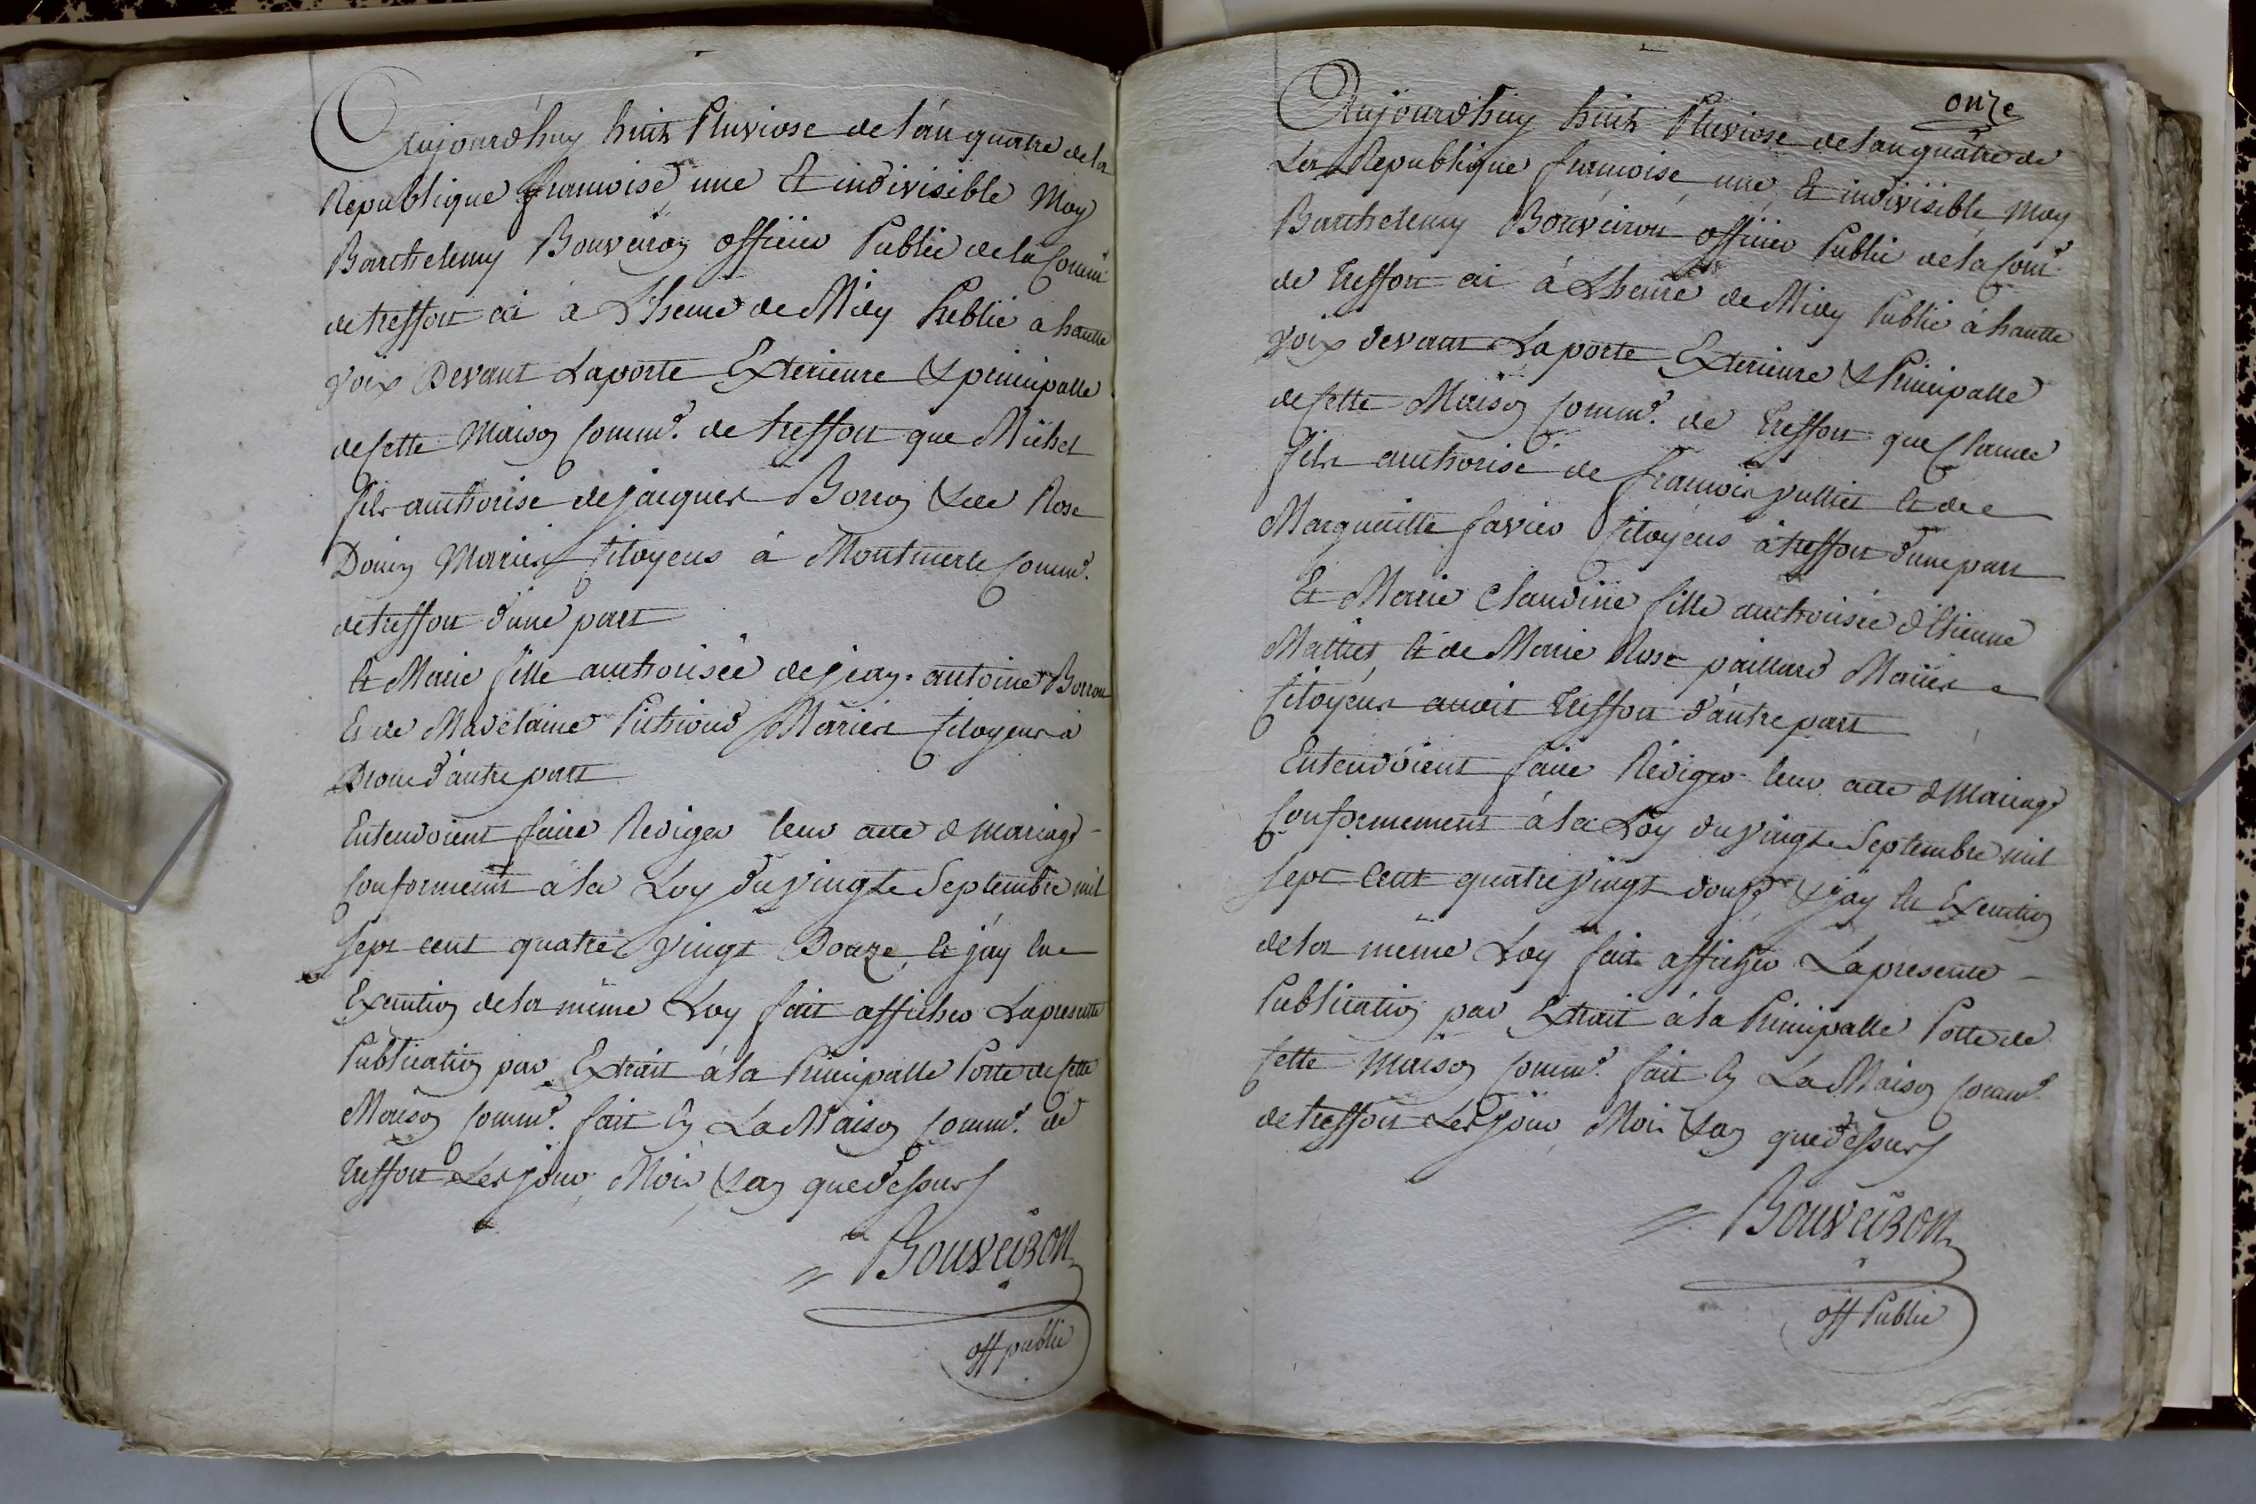 Aujourd'huy huit Pluviose de l'an quatre de la
Republique francoise une Et indivisible Moy
Barthelemy Bouveiron officier Public de la Comm.
de treffort ai à L'heure de Midy Publié a haute
Voix Devant La porte Exterieure & principalle
de Cette Maison Comm.e de treffort que Michel
fils authorisé de jacques Borron & de Rose
Douin Mariés Citoyens à Montmerle Comm.e
de treffort d'une part
Et Marie fille authorisée de jean antoine Borron
Et de Madelaine Pithioud Mariés Citoyens à
Drom d'autre part
Entendoient faire Rediger leur acte d Mariage
Conformement à la Loy du Vingt Septembre mil
Sept cent quatre Vingt Douze, Et j'ay En
Execution de la même Loy fait afficher La presente
Publication par Extrait à la Principalle Porte de Cette
Maison Comm.e fait En La Maison Comm.e de
treffort Les jour, Mois, & an que dessus
Bouveiron
off public
onze
Aujourd'huy huit Pluviose de l'an quatre de
La Republique francoise, une, Et indivisible, Moy
Barthelemy Bouveiron officier Public de la Com.e
de treffort ai à L'heure de Midy Publié à hautte
Voix devant La porte Exterieure & Principalle
de Cette Maison Comm.e de treffort que Claude
fils authorisé de francois Vulliet Et de
Margueritte favier Citoyens à treffort d'une part
Et Marie Claudine fille authorisée d'Etienne
Mattiet, Et de Marie Rose paillard Mariés
Citoyens audit treffort d'autre part
Entendoient faire Rédiger leur acte d Mariage
Conformement à la Loy du Vingt Septembre mil
Sept Cent quatre Vingt douze & j'ay En Execution
de la même Loy fait afficher La presente
Publication par Extrait à la Principalle Porte de
Cette Maison Comm.e fait En La Maison Comm.e
de treffort Les jour, Mois & an que dessus
Bouveiron
off Public